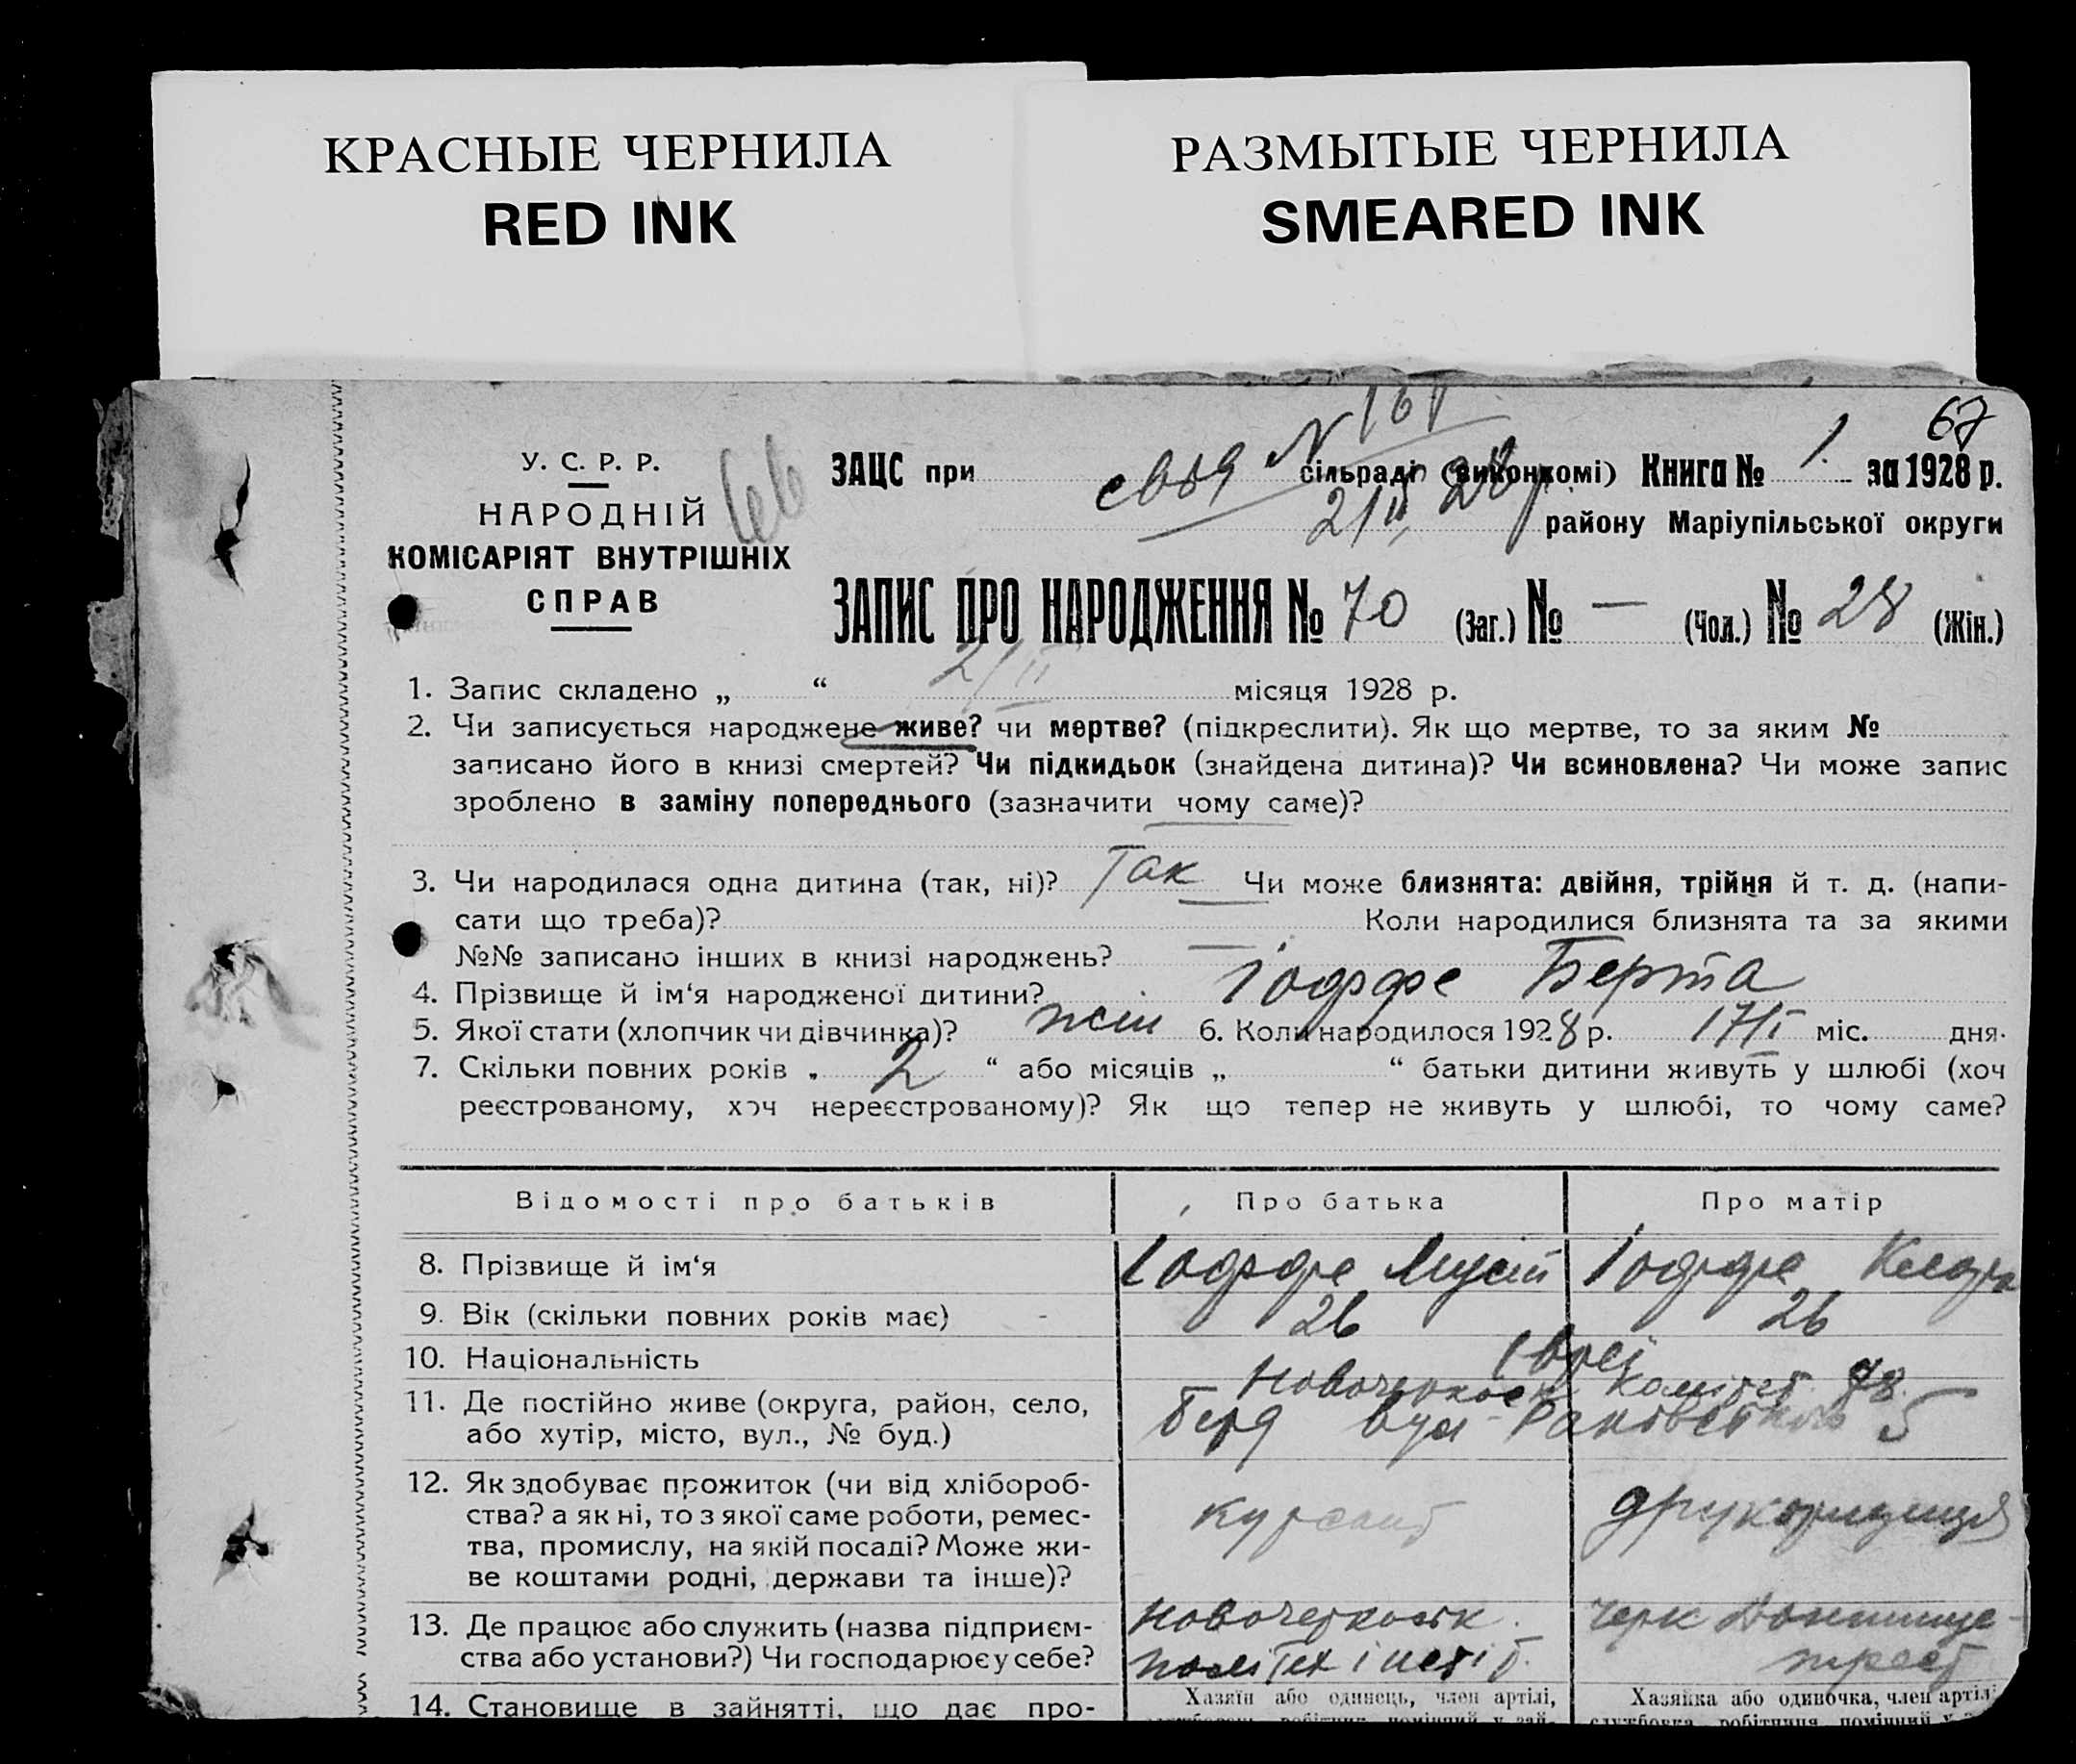 КРАСНЫЕ ЧЕРНИЛА
RED INK
РАЗМЫТЫЕ ЧЕРНИЛА
SMEARED INK
67
У. С. Р. Р.
НАРОДНІЙ
КОМІСАРІЯТ ВНУТРІШНІХ
СПРАВ
66
ЗАЦС при сільраді (виконкомі) Книга № 1. за 1928 р.
району Маріупільської округи
ЗАПИС ПРО НАРОДЖЕННЯ № 70 (Заг.) № — (Чол.) № 28 (Жін.)
1. Запис складено „ “ 2/II місяця 1928 р.
2. Чи записується народжене живе? чи мертве? (підкреслити). Як що мертве, то за яким №
записано його в книзі смертей? Чи підкидьок (знайдена дитина)? Чи всиновлена? Чи може запис
зроблено в заміну попереднього (зазначити чому саме)?
3. Чи народилася одна дитина (так, ні)? Так Чи може близнята: двійня, трійня й т. д. (напи-
сати що треба)? Коли народилися близнята та за якими
№№ записано інших в книзі народжень? —
4. Прізвище й ім‘я народженої дитини? Іоффе Берта
5. Якої стати (хлопчик чи дівчинка)? жін 6. Коли народилося 1928 р. 17/I міс. дня.
7. Скільки повних років „ 2 “ або місяців „ “ батьки дитини живуть у шлюбі (хоч
реєстрованому, хоч нереєстрованому)? Як що тепер не живуть у шлюбі, то чому саме?
Відомості про батьків Про батька Про матір
8. Прізвище й ім‘я Іоффе Іоффе
9. Вік (скільки повних років має) 26 26
10. Національність євреї
11. Де постійно живе (округа, район, село,
або хутір, місто, вул., № буд.)
Новочеркаськ 78
вул 5
12. Як здобуває прожиток (чи від хлібороб-
ства? а як ні, то з якої саме роботи, ремес-
тва, промислу, на якій посаді? Може жи-
ве коштами родні, держави та інше)?
курсант
13. Де працює або служить (назва підприєм-
ства або установи?) Чи господарює у себе?
Новочеркаськ
політех інстіт.
трест
14. Становище в зайнятті, що дає про-
Хазяїн або одинець, член артілі,
Хазяйка або одиночка, член артілі